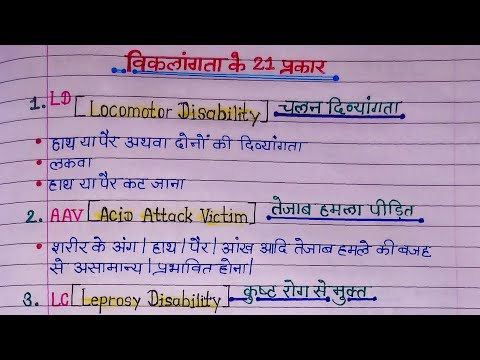 विकलांगता के 21 प्रकार
1. LD [Locomotor Disability] चलन दिव्यांगता
• हाथ या पैर अथवा दोनों की दिव्यांगता
• लकवा
• हाथ या पैर कट जाना
2. AAV [Acid Attack Victim] तेजाब हमला पीड़ित
• शरीर के अंग | हाथ | पैर | आंख आदि तेजाब हमले की वजह
से असामान्य | प्रभावित होना |
3. LC [Leprosy Disability] कुष्ट रोग से मुक्त